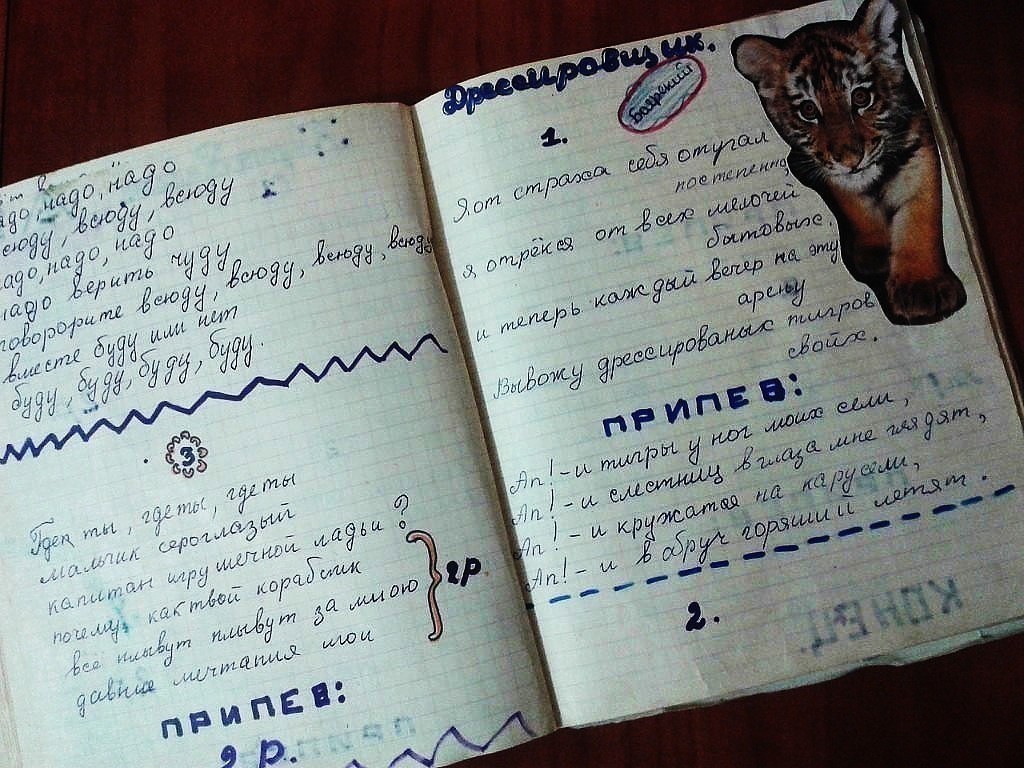 надо, надо
всюду, всюду
надо, надо, надо
надо верить чуду
говорорите всюду, всюду, всюду, всюду
вместе буду или нет
буду, буду, буду, буду.
3
Где ты, где ты, где ты
мальчик сероглазый
капитан игрушечной ладьи?
почему, как твой кораблик
все плывут плывут за мною
давние мечтания мои
2р
ПРИПЕВ:
2 р.
Дрессировщик.
Боярский
1.
Я от страха себя отугал
постепенно,
я отрёкся от всех мелочей
бытовых.
и теперь каждый вечер на эту
арену
Вывожу дрессированых тигров
свойх.
ПРИПЕВ:
Ап! - и тигры у ног моих сели,
Ап! - и слестниц в глаза мне глядят,
Ап! - и кружатся на карусели,
Ап! - и в обруч горящий летят.
2.
КОНЕЦ.